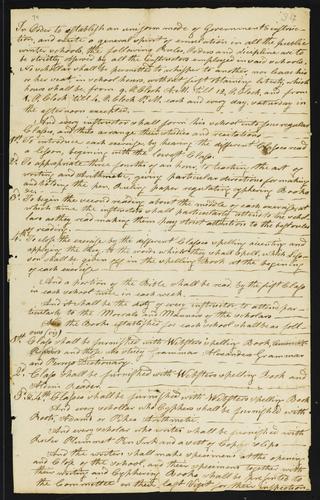 In Order to establish an uniform mode of Government & instruc-
tion, and excite a general spirit of emulation in all the public
winter schools, the following Rules, Orders and discipline are to
be strictly observed by all the instructors employed in said schools.
No scholar shall be permitted to whisper to another, nor leave his
or her seat in school hours, without first obtaining liberty, which
hours shall be from 9 O,Clock A.M. till 12, O,Clock, and from
1, O,Clock till 4, O,Clock P.M. each and every day, saturday in
the afternoon excepted.
And every instructor shall form his school into four regular
Classes, and thus arrange their studies and recitations
1st To introduce each exercise, by hearing the different Classes read
a lesson, beginning with the lowest Class.
2d To appropriate three fourths of an hour to teaching the art of
writing and Arithmetic, giving particular directions for making
and holding the pen, ruling paper, regulating cyphering Books
&c.
3d To begin the second reading about the middle of each exercise, at
which time the instructors shall particularly attend to the schol-
lars as they read making them pay strict attention to the best rules
of reading.
4th To close the exercise by the different Classes spelling accenting and
applying the key to the words which they shall spell, which lesson
shall be given off in the spelling Book at the beginning
of each exercise
And a portion of the Bible shall be read by the first Class
in each school once in each week.
And it shall be the duty of every instructor to attend par-
ticularly to the Morals and Manners of the scholars
the Books established for each school shall be as foll-
ows (viz)
1st Class shall be furnished with Websters spelling Book,
and
2d Class shall be furnished with Websters spelling Book and
Reader
3d & 4th Classes shall be furnished with Websters spelling Book
And every schollar who Cyphers shall be furnished with
Adams or Pikes Arithmetic
And every scholar who writes shall be furnished with
Ruler Plummet Pen Ink and a set of Copper Slips
And the writers shall make specimens at the opening
and Close of the school, and these specimens together with
their writing and Cyphering Books, shall be presented to
the Committee on their last Visit for their inspection